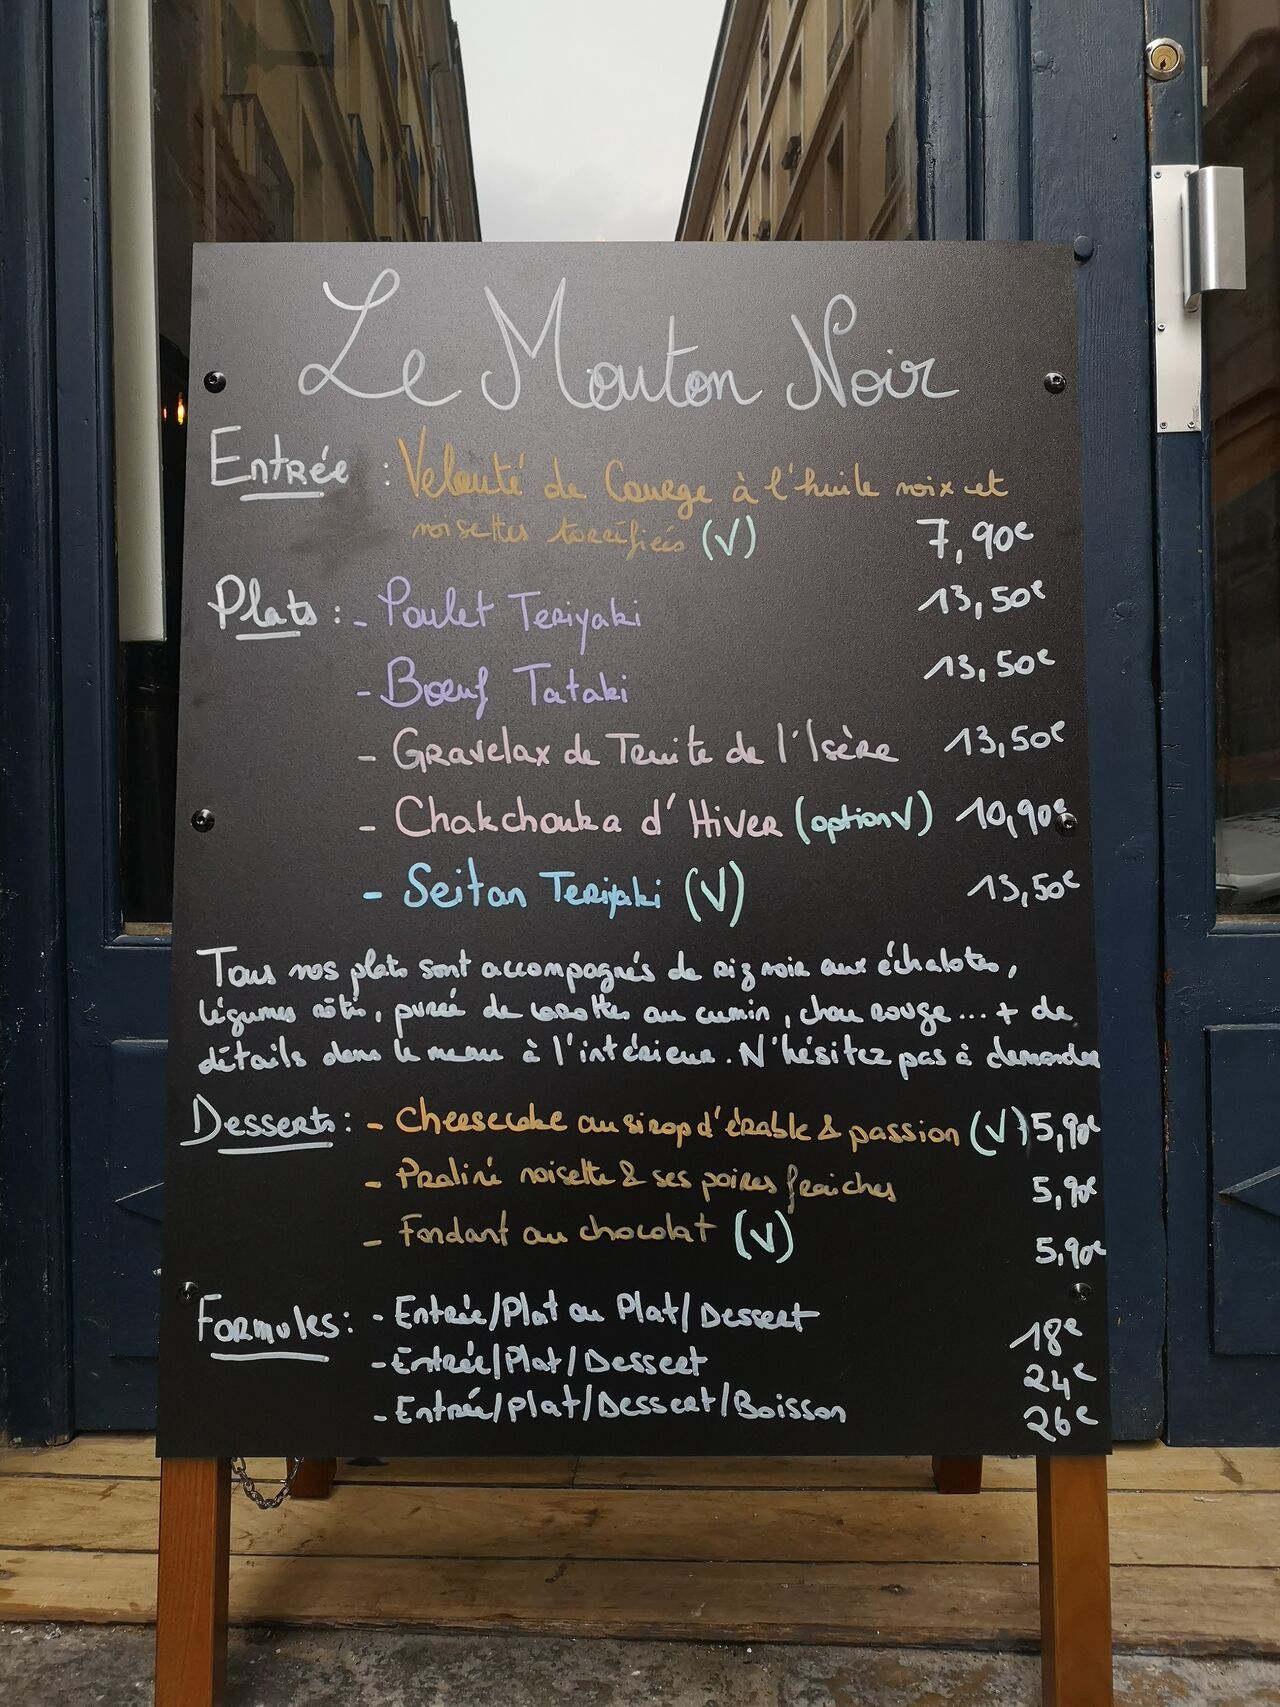 Le Mouton Noir
Entrée : Velouté de Courge à l'huile noix et
noisettes torréfiées (V) 7,90€
Plats : - Poulet Teriyaki 13,50€
- Bœuf Tataki 13,50€
- Gravelax de Truite de l'Isère 13,50€
- Chakchouka d'Hiver (option V) 10,90€
- Seitan Teriyaki (V) 13,50€
Tous nos plats sont accompagnés de riz noir aux échalotes,
légumes rôtis, purée de carottes au cumin, chou rouge... + de
détails dans le menu à l'intérieur. N'hésitez pas à demander
Desserts : - Cheesecake au sirop d'érable & passion (V) 5,90€
- Praliné noisette & ses poires fraîches 5,90€
- Fondant au chocolat (V) 5,90€
Formules : - Entrée/Plat ou Plat/Dessert 18€
- Entrée/Plat/Dessert 24€
- Entrée/Plat/Dessert/Boisson 26€